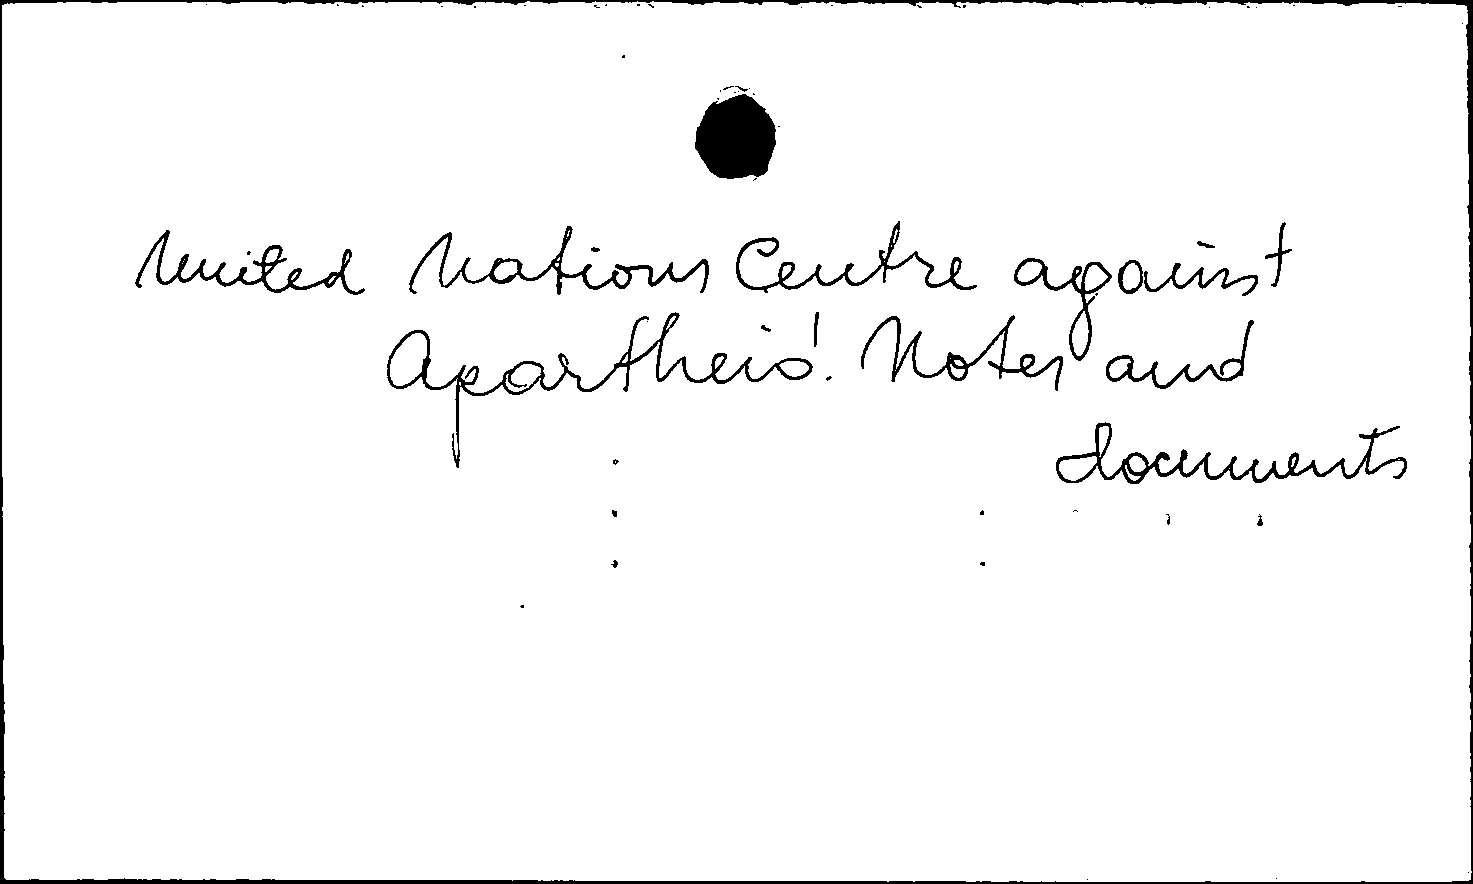 United Nations Centre against
Apartheid. Notes and
documents